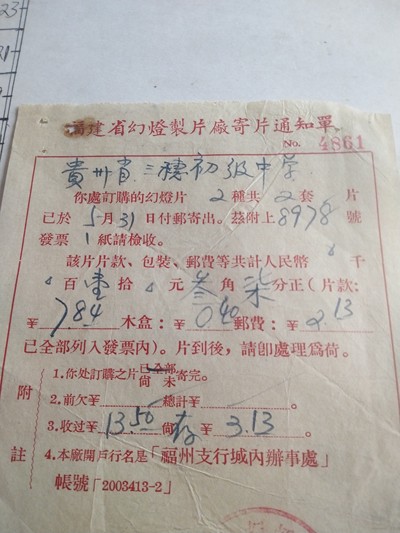 福建省幻燈製片廠寄片通知單
No. 4861
貴州省三穗初級中学
你處訂購的幻燈片2種共2套 片
已於5月31日付郵寄出。茲附上8978號
發票1紙請檢收。
該片片款、包裝、郵費等共計人民幣 千
百壹拾 元叁角柒分正(片款:
¥7.84木盒:¥0.40郵費:¥2.13
已全部列入發票內)。片到後,請卽處理爲荷。
附註
1.你处訂購之片已全部尙未寄完。
2.前欠¥ 總計¥ 。
3.收过¥13.50尙存¥3.13
4.本廠開戶行名是「福州支行城內辦事處」
帳號「2003413-2」